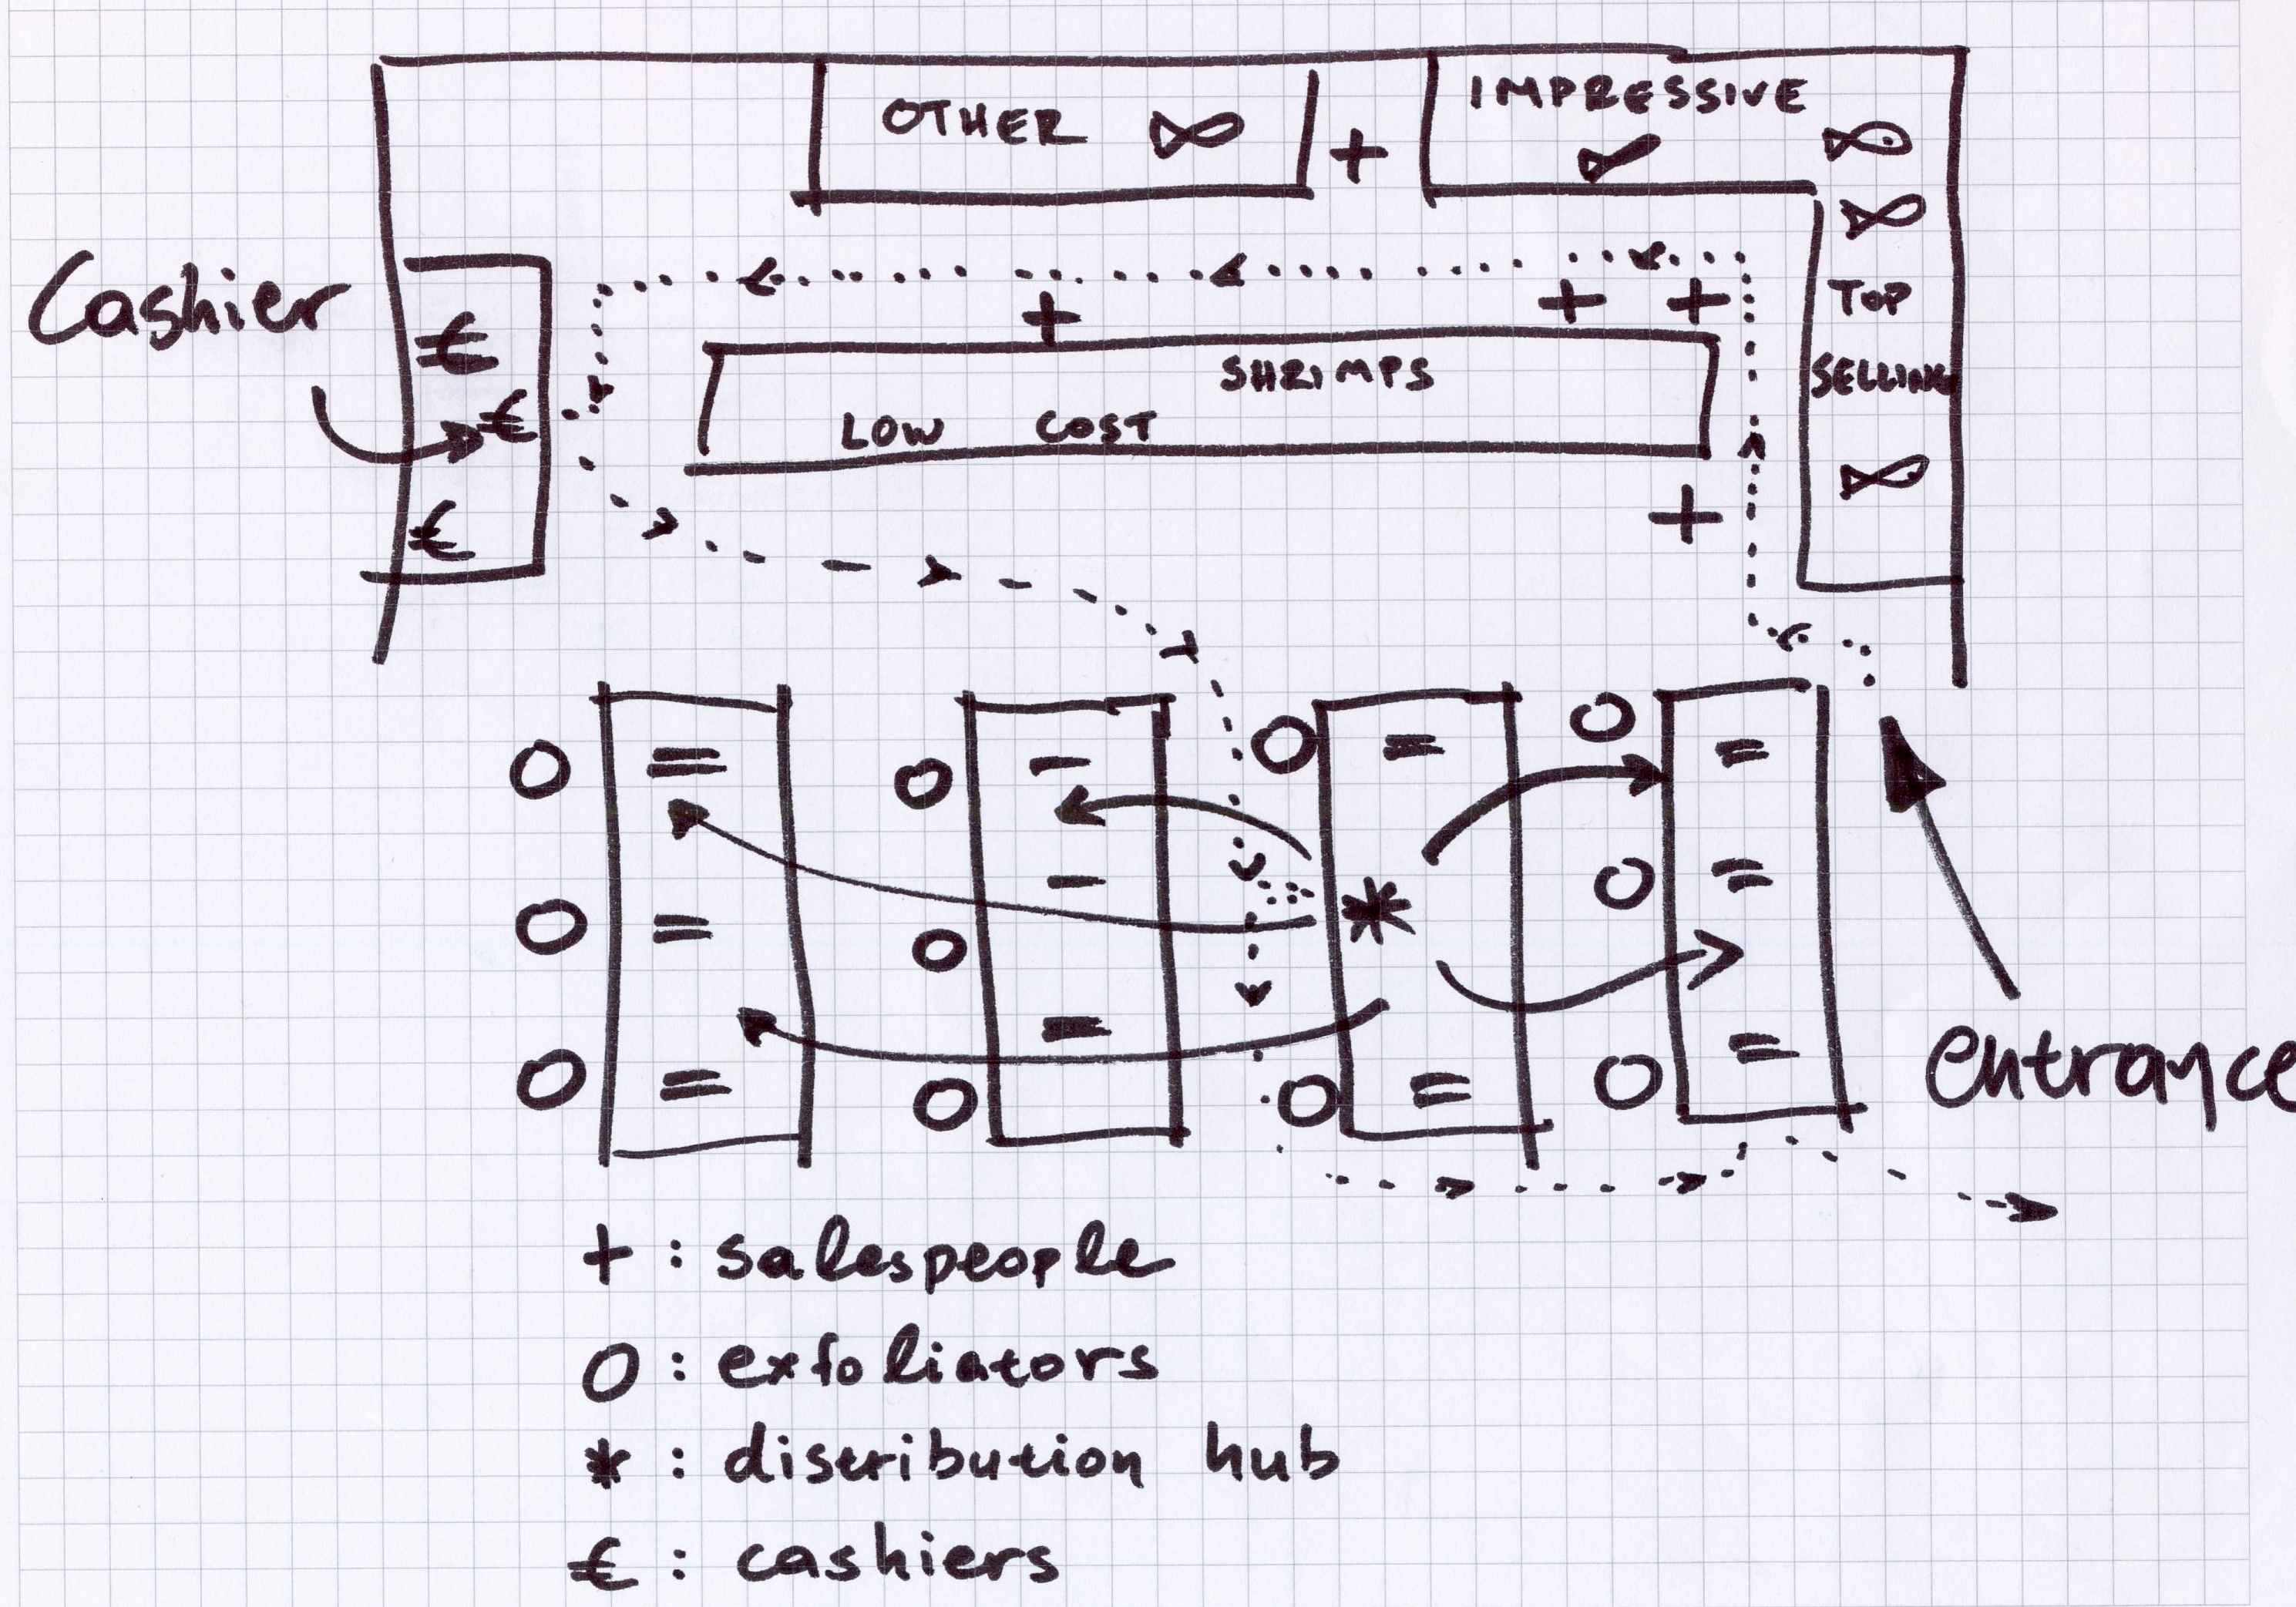 OTHER
IMPRESSIVE
TOP
SELLING
Cashier
€
€
€
SHRIMPS
LOW COST
entrance
+ : salespeople
O : exfoliators
* : distribution hub
€ : cashiers